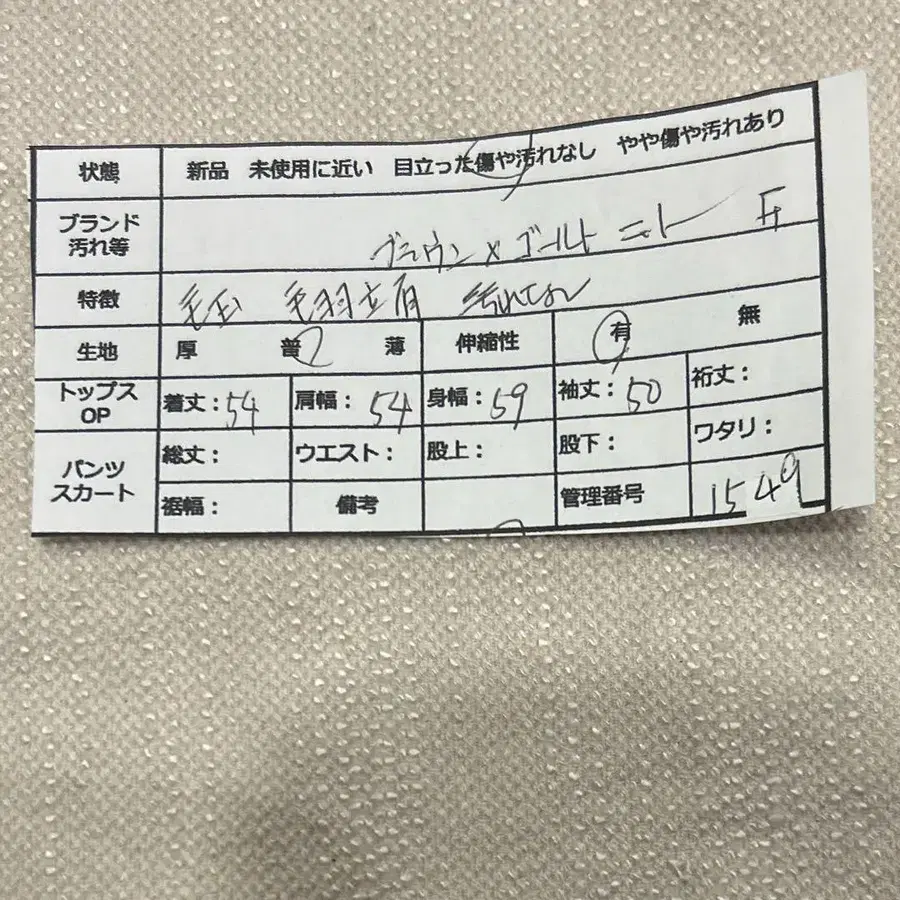 状態 新品 未使用に近い 目立った傷や汚れなし やや傷や汚れあり
ブランド
汚れ等 ブラウン×ゴールド ニット F
特徴 毛玉 毛羽立有 汚れなし
生地 厚 普 薄 伸縮性 有 無
トップス
OP 着丈：54 肩幅：54 身幅：59 袖丈：50 裄丈：
パンツ
スカート 総丈： ウエスト： 股上： 股下： ワタリ：
裾幅： 備考 管理番号 1549